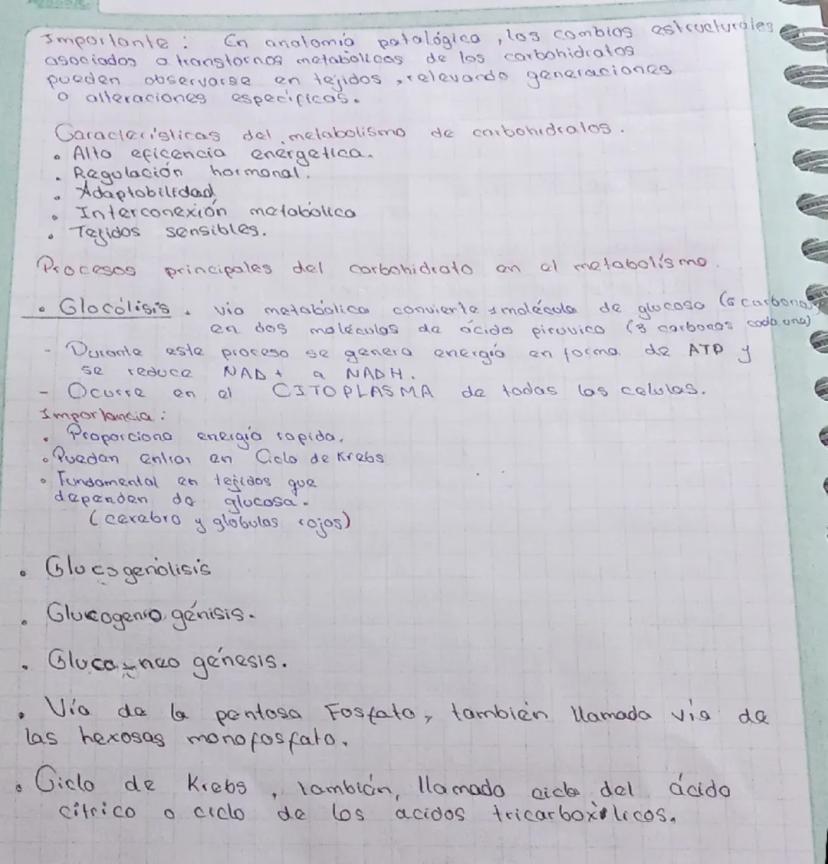 Importante: En anatomía patológica, los combios estructurales
asociados a transtornos metabolicos de los carbohidratos
pueden observarse en tejidos, relevando generaciones
o alteraciones especificas.
Caracteristicas del metabolismo de carbohidratos.
• Alto eficencia energetica.
• Regulación hormonal.
• Adaptabilidad
• Interconexión metabolica
• Tejidos sensibles.
Procesos principales del carbohidrato en el metabolismo.
• Glocólisis. via metabólica convierte 1 molécula de glucosa (6 carbonos)
en dos moléculas de ácido piruvico (3 carbonos cada una)
- Durante este proceso se genera energía en forma de ATP y
se reduce NAD+ a NADH.
- Ocurre en el CITOPLASMA de todas las celulas.
Importancia:
• Proporciona energía rapida.
• Puedan entrar en Ciclo de Krebs
• Fundamental en tejidos que
dependen de glucosa.
(cerebro y glóbulos rojos)
• Glucogenólisis
• Glucogeno génisis.
• Gluco neo génesis.
• Vía de la pentosa Fosfato, también llamada via de
las hexosas monofosfato.
• Ciclo de Krebs, también, llamado ciclo del ácido
cítrico o ciclo de los acidos tricarboxilicos.